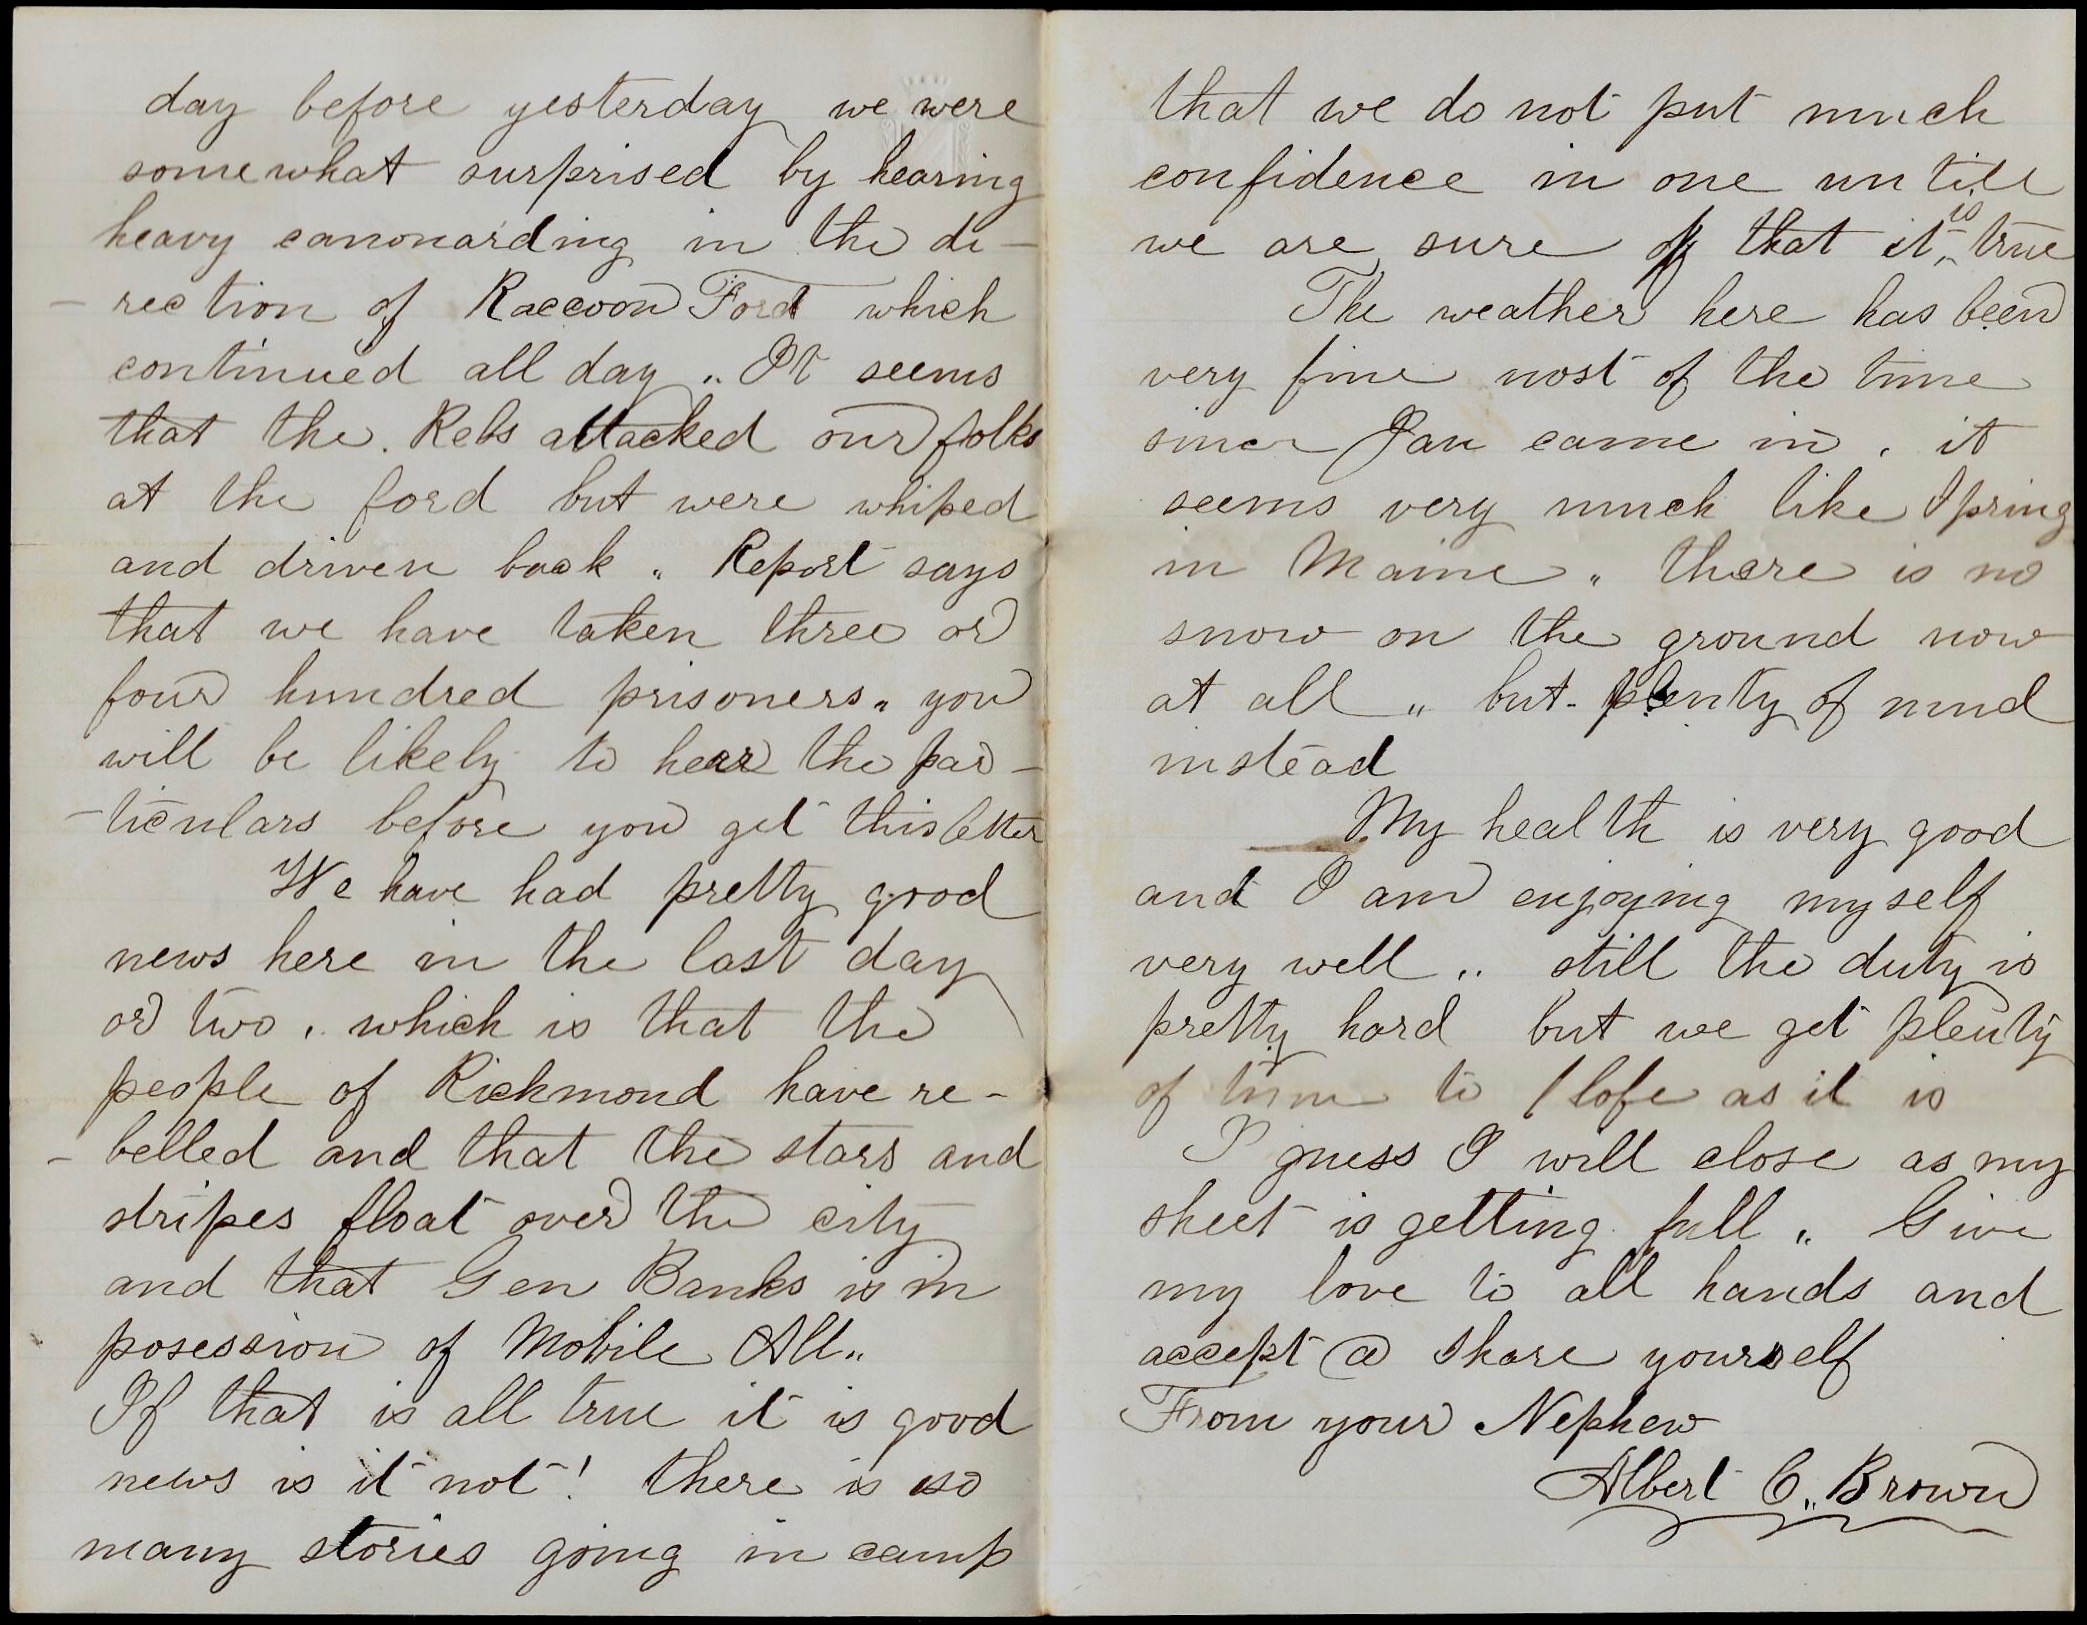 day before yesterday we were
somewhat surprised by hearing
heavy canonarding in the di-
-rection of Raccoon Ford which
continued all day „ It seems
that the . Rebs attacked our folks
at the ford but were whiped
and driven back „ Report says
that we have taken three or
four hundred prisoners „ you
will be likely to hear the par-
-ticulars before you get this letter
We have had pretty good
news here in the last day
or two , which is that the
people of Richmond have re-
-belled and that the stars and
stripes float over the city
and that Gen Banks is in
posession of Mobile All „
If that is all true it is good
news is it not ! there is so
many stories going in camp
that we do not put much
confidence in one untill
we are sure of that it is true
The weather here has been
very fine most of the time
since Jan came in , it
seems very much like Spring
in Maine „ there is no
snow on the ground now
at all „ but plenty of mud
instead
My health is very good
and I am enjoying myself
very well „ still the duty is
pretty hard but we get plenty
of time to lofe as it is
I guess I will close as my
sheet is getting full „ Give
my love to all hands and
accept a share yourself
From your Nephew
Albert C„ Brown